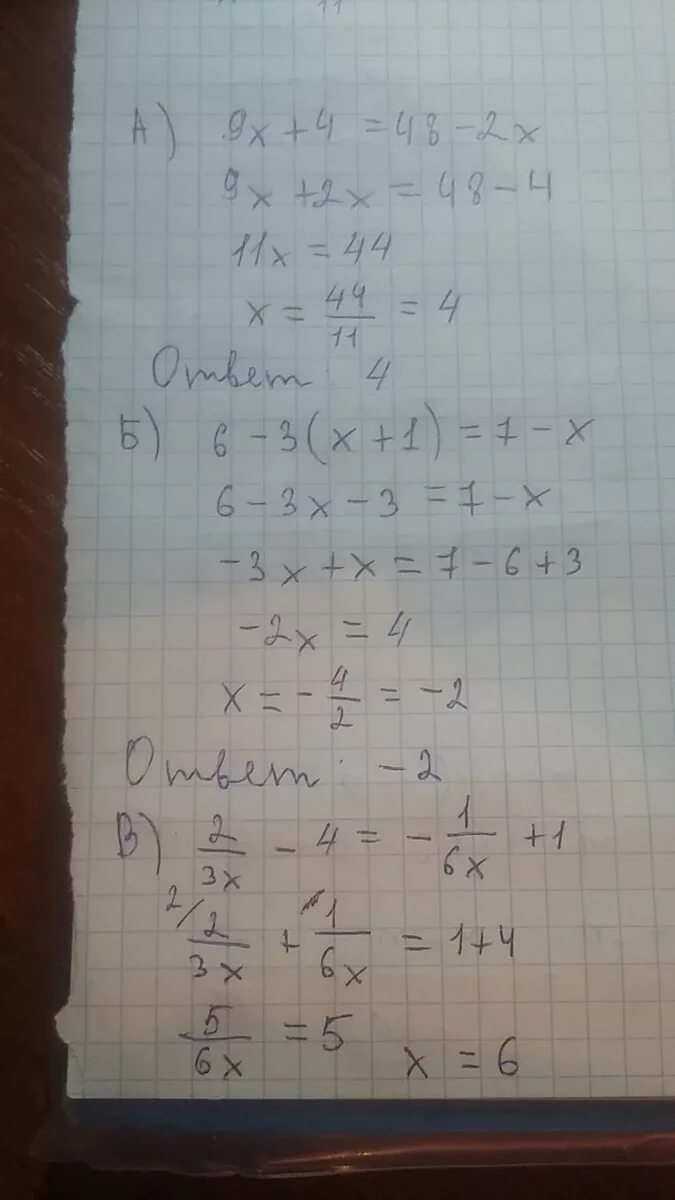 11
А) 9x + 4 = 48 - 2x
9x + 2x = 48 - 4
11x = 44
x = 44/11 = 4
Ответ : 4
Б) 6 - 3(x + 1) = 7 - x
6 - 3x - 3 = 7 - x
-3x + x = 7 - 6 + 3
-2x = 4
x = - 4/2 = -2
Ответ : -2
В) 2/3x - 4 = - 1/6x + 1
2/ 2/3x + 1/6x = 1 + 4
5/6x = 5 x = 6